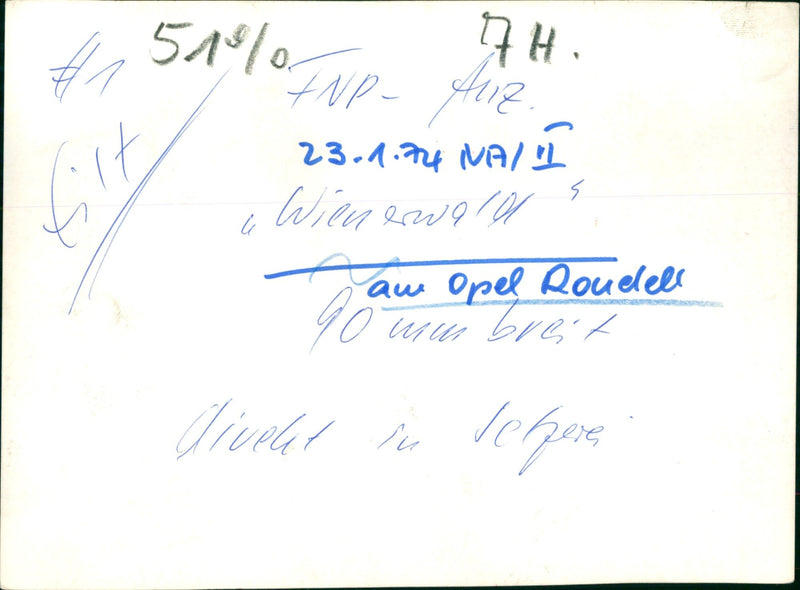 51% 7H.
#1 FNP- Anz.
eilt
23.1.74 NA/II
„Wienerwald“
am Opel Rondell
90 mm breit
direkt in Setzerei